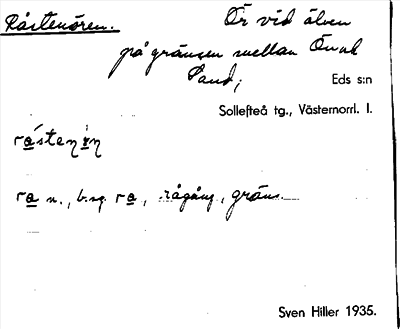 Råstenören. Ör vid älven
på gränsen mellan Ön och
Sand;
Eds s:n
Sollefteå tg., Västernorrl. l.
ra n., b.sg. ra, rågång, gräns.
Sven Hiller 1935.